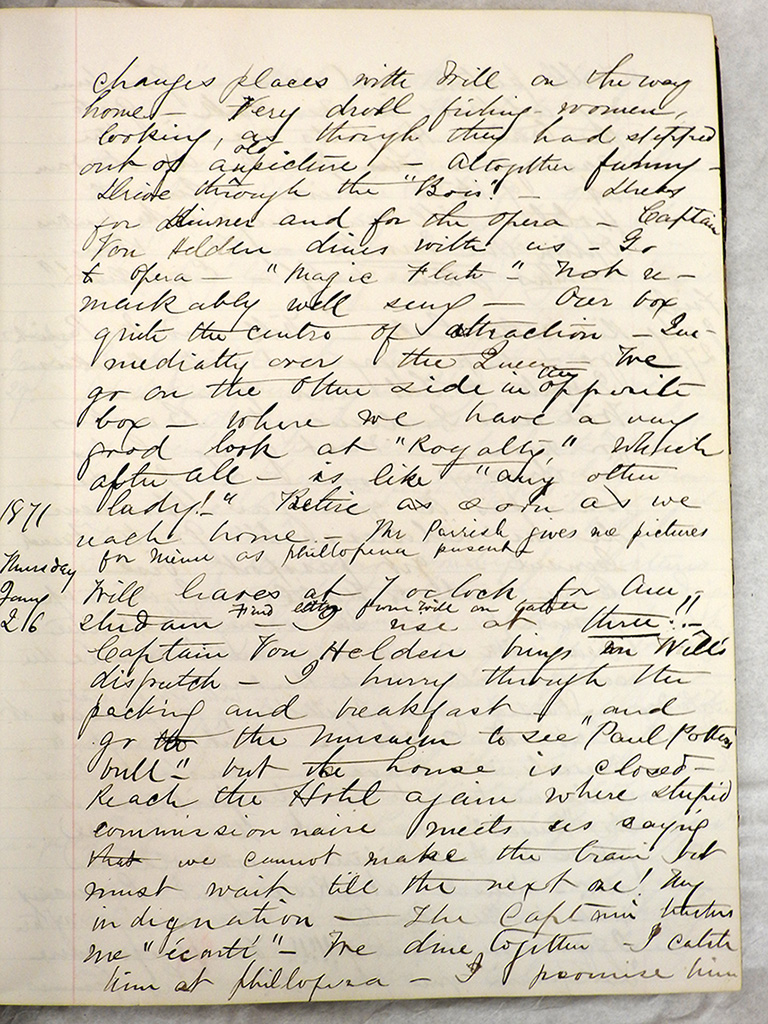 changes places with Will on the way
home – Very droll fishing-women,
looking, as though they had stepped
out of an old picture – Altogether funny –
Drive through the "Bois"! – Dress
for dinner and for the opera – Captain
Von Helden dines with us – Go
to opera – "Magic Flute" – Not re-
markably well sung – Our box
quite the centre of attraction – Im-
mediatly over the Queen – We
go on the other side in an opposite
box – where we have a very
good look at "Royalty," which
after all – is like "any other
lady!" Retire as soon as we
reach home – Mr Parrish gives me pictures
for menu as phillopena present
1871
Thursday
Jany
26
Will leaves at 7 oclock for Am-
sterdam – I rise at three!! –
Find from Will on
Captain Von Helden brings in Will's
dispatch – I hurry through the
packing and breakfast – and
go to the Museum to see "Paul Potters
bull" – but the house is closed –
Reach the Hotel again where stupid
commissionnaire meets us saying
that we cannot make the train but
must wait till the next one! My
indignation – The Captain
me "écarté" – We dine together – I catch
him at phillopena – I promise him